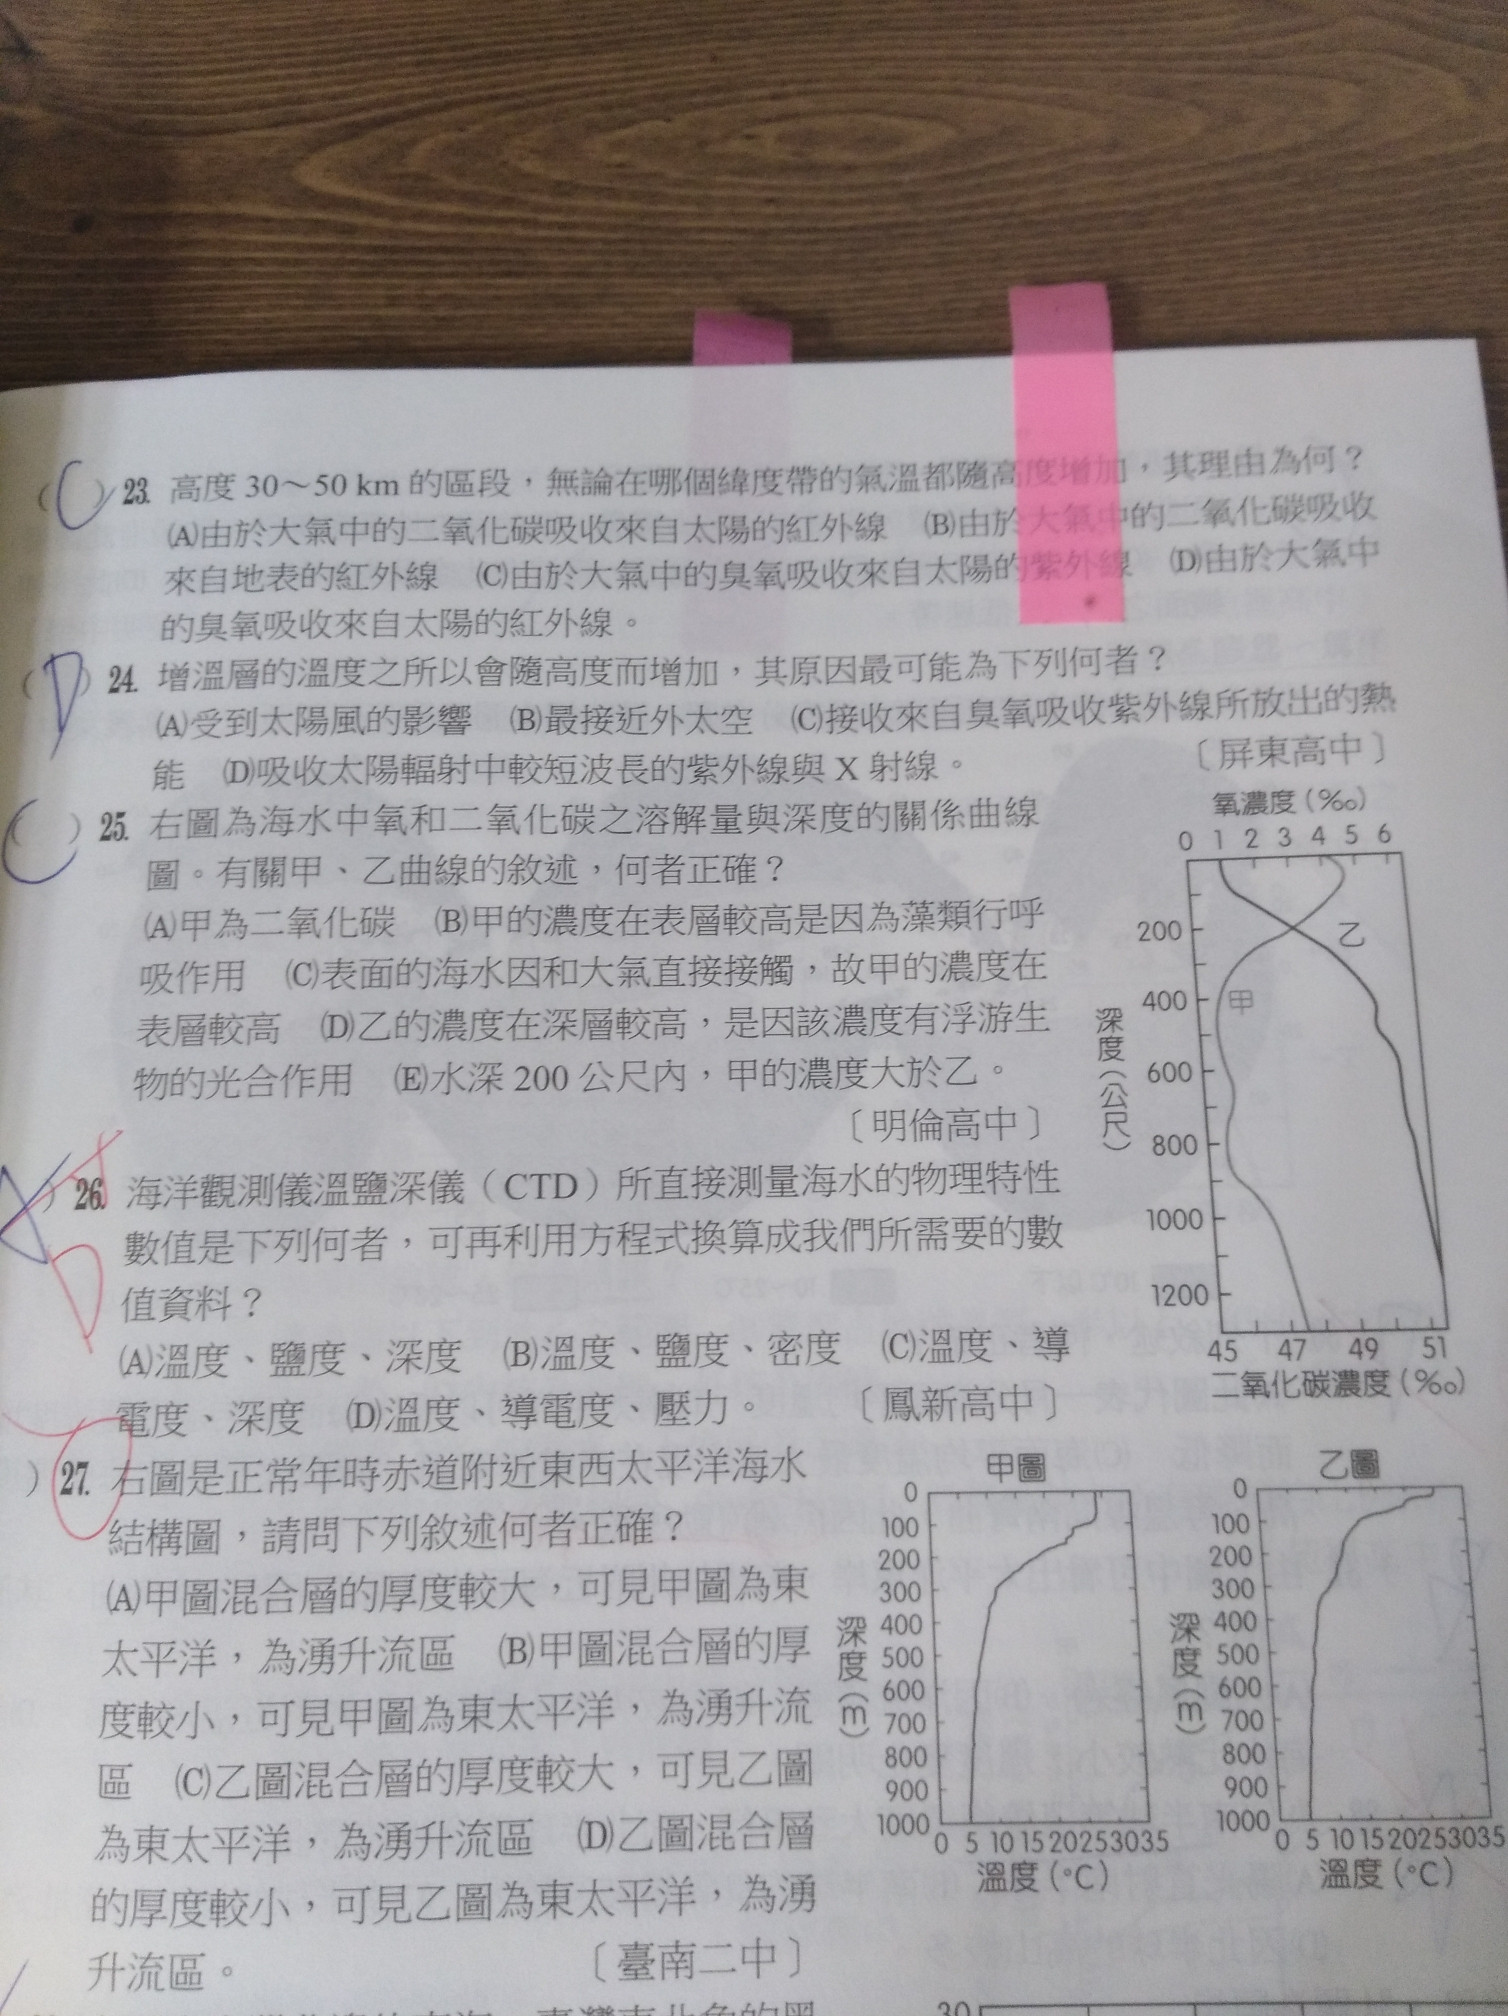 (C) 23. 高度 30～50 km 的區段，無論在哪個緯度帶的氣溫都隨高度增加，其理由為何？
(A)由於大氣中的二氧化碳吸收來自太陽的紅外線 (B)由於大氣中的二氧化碳吸收
來自地表的紅外線 (C)由於大氣中的臭氧吸收來自太陽的紫外線 (D)由於大氣中
的臭氧吸收來自太陽的紅外線。
(D) 24. 增溫層的溫度之所以會隨高度而增加，其原因最可能為下列何者？
(A)受到太陽風的影響 (B)最接近外太空 (C)接收來自臭氧吸收紫外線所放出的熱
能 (D)吸收太陽輻射中較短波長的紫外線與 X 射線。
〔屏東高中〕
(C) 25. 右圖為海水中氧和二氧化碳之溶解量與深度的關係曲線
圖。有關甲、乙曲線的敘述，何者正確？
(A)甲為二氧化碳 (B)甲的濃度在表層較高是因為藻類行呼
吸作用 (C)表面的海水因和大氣直接接觸，故甲的濃度在
表層較高 (D)乙的濃度在深層較高，是因該濃度有浮游生
物的光合作用 (E)水深 200 公尺內，甲的濃度大於乙。
〔明倫高中〕
氧濃度(‰)
0 1 2 3 4 5 6
200
400
600
800
1000
1200
深度(公尺)
甲
乙
45 47 49 51
二氧化碳濃度(‰)
D
) 26. 海洋觀測儀溫鹽深儀（CTD）所直接測量海水的物理特性
數值是下列何者，可再利用方程式換算成我們所需要的數
值資料？
(A)溫度、鹽度、深度 (B)溫度、鹽度、密度 (C)溫度、導
電度、深度 (D)溫度、導電度、壓力。 〔鳳新高中〕
) 27. 右圖是正常年時赤道附近東西太平洋海水
結構圖，請問下列敘述何者正確？
(A)甲圖混合層的厚度較大，可見甲圖為東
太平洋，為湧升流區 (B)甲圖混合層的厚
度較小，可見甲圖為東太平洋，為湧升流
區 (C)乙圖混合層的厚度較大，可見乙圖
為東太平洋，為湧升流區 (D)乙圖混合層
的厚度較小，可見乙圖為東太平洋，為湧
升流區。 〔臺南二中〕
甲圖
0
100
200
300
400
500
600
700
800
900
1000
深度(m)
0 5 10 15 20 25 30 35
溫度(°C)
乙圖
0
100
200
300
400
500
600
700
800
900
1000
深度(m)
0 5 10 15 20 25 30 35
溫度(°C)
30